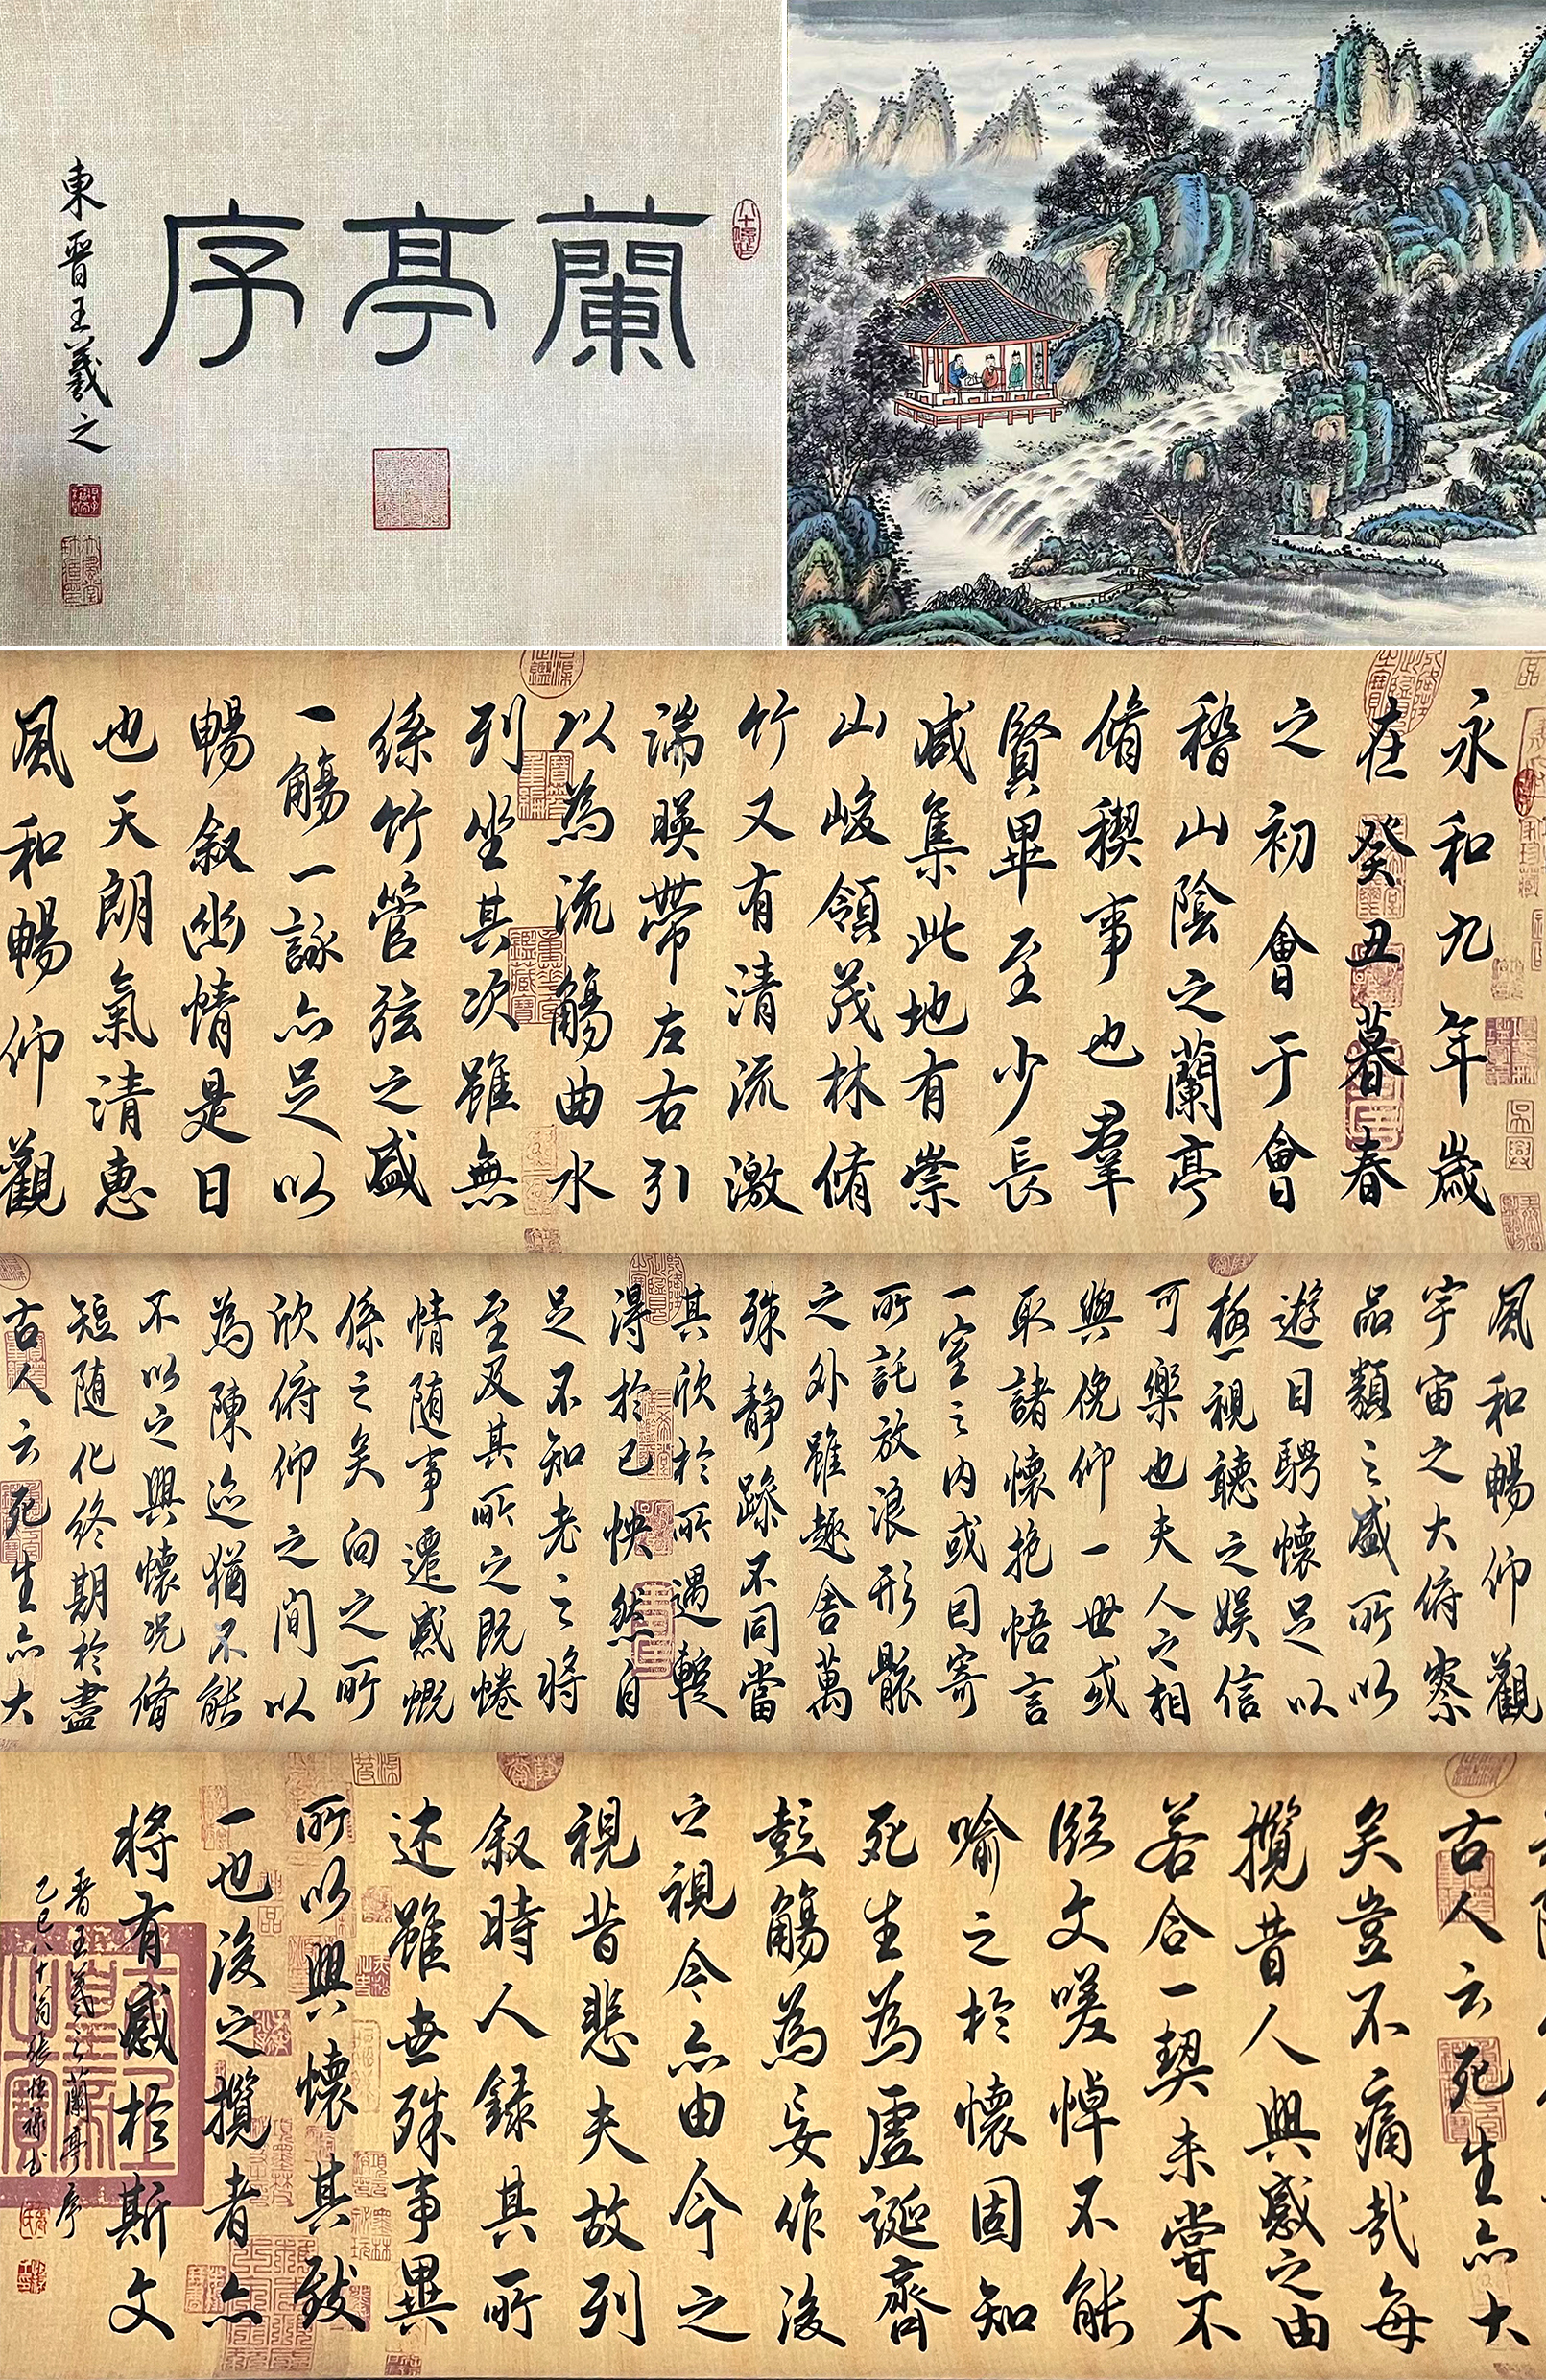 蘭亭序
東晉王羲之
永和九年歲
在癸丑暮春
之初會于會
稽山陰之蘭亭
脩稧事也羣
賢畢至少長
咸集此地有崇
山峻領茂林脩
竹又有清流激
湍暎帶左右引
以為流觴曲水
列坐其次雖無
絲竹管弦之盛
一觴一詠亦足以
暢敘幽情是日
也天朗氣清惠
風和暢仰觀
風和暢仰觀
宇宙之大俯察
品類之盛所以
遊目騁懷足以
極視聽之娛信
可樂也夫人之相
與俛仰一世或
取諸懷抱悟言
一室之內或因寄
所託放浪形骸
之外雖趣舍萬
殊靜躁不同當
其欣於所遇蹔
得於己怏然自
足不知老之將
至及其所之既惓
情隨事遷感慨
係之矣向之所
欣俯仰之間以
為陳迹猶不能
不以之興懷況脩
短隨化終期於盡
古人云死生亦大
古人云死生亦大
矣豈不痛哉每
攬昔人興感之由
若合一契未嘗不
臨文嗟悼不能
喻之於懷固知
死生為虛誕齊
彭觴為妄作後
之視今亦由今之
視昔悲夫故列
敘時人錄其所
述雖世殊事異
所以興懷其致
一也後之攬者亦
將有感於斯文
晉王羲之蘭亭序
乙巳八十翁張